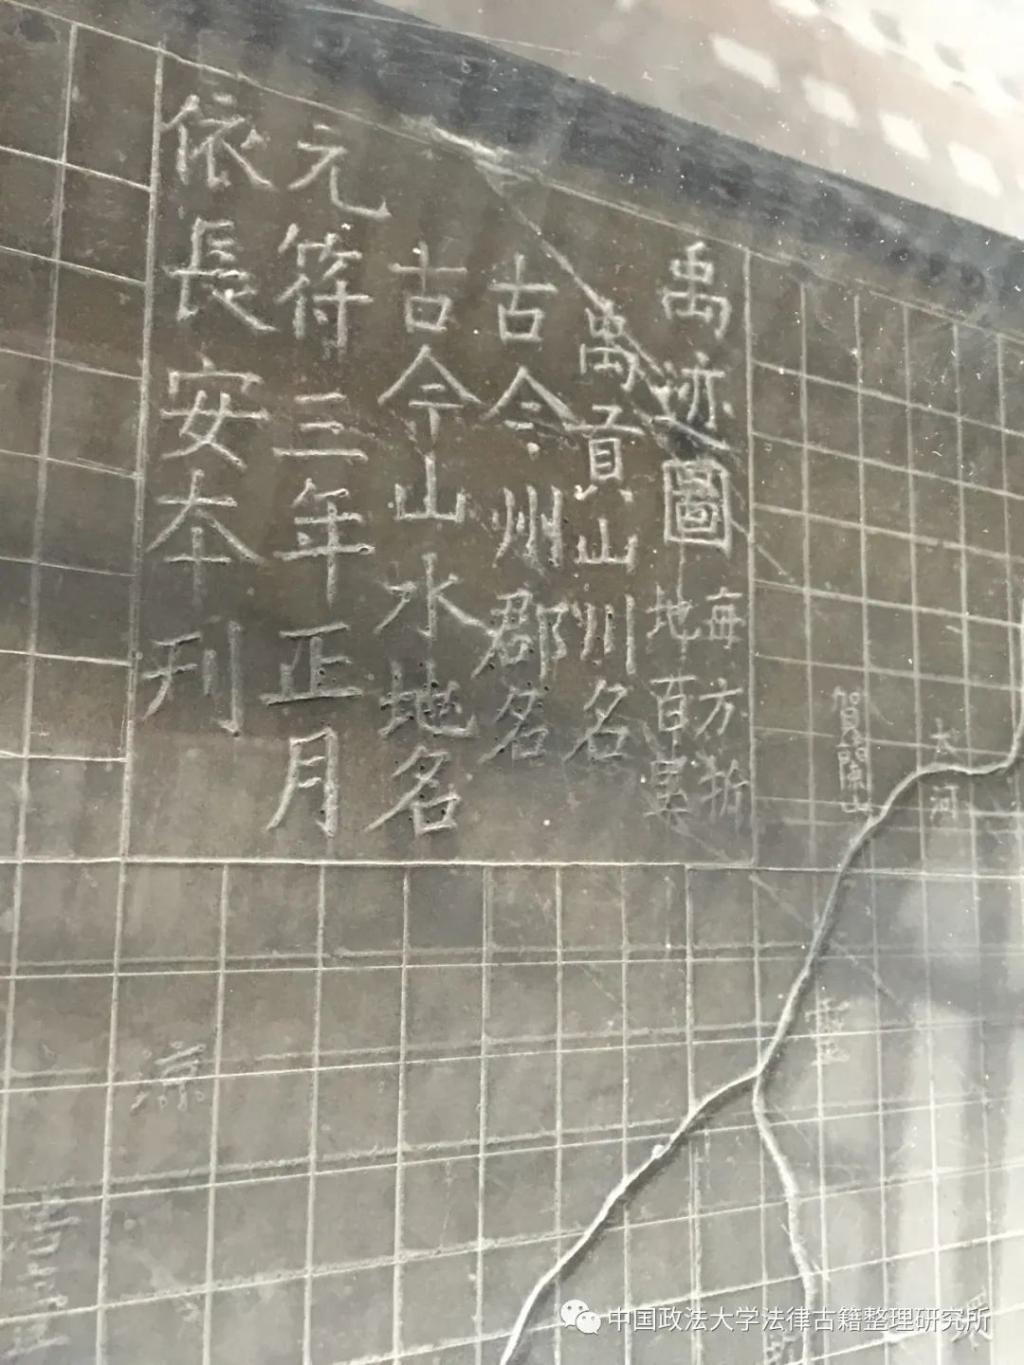 禹迹圖
每方折
地百里
禹貢山川名
古今州郡名
古今山水地名
元符三年正月
依長安本刊
大河
賀蘭山
涼
中国政法大学法律古籍整理研究所